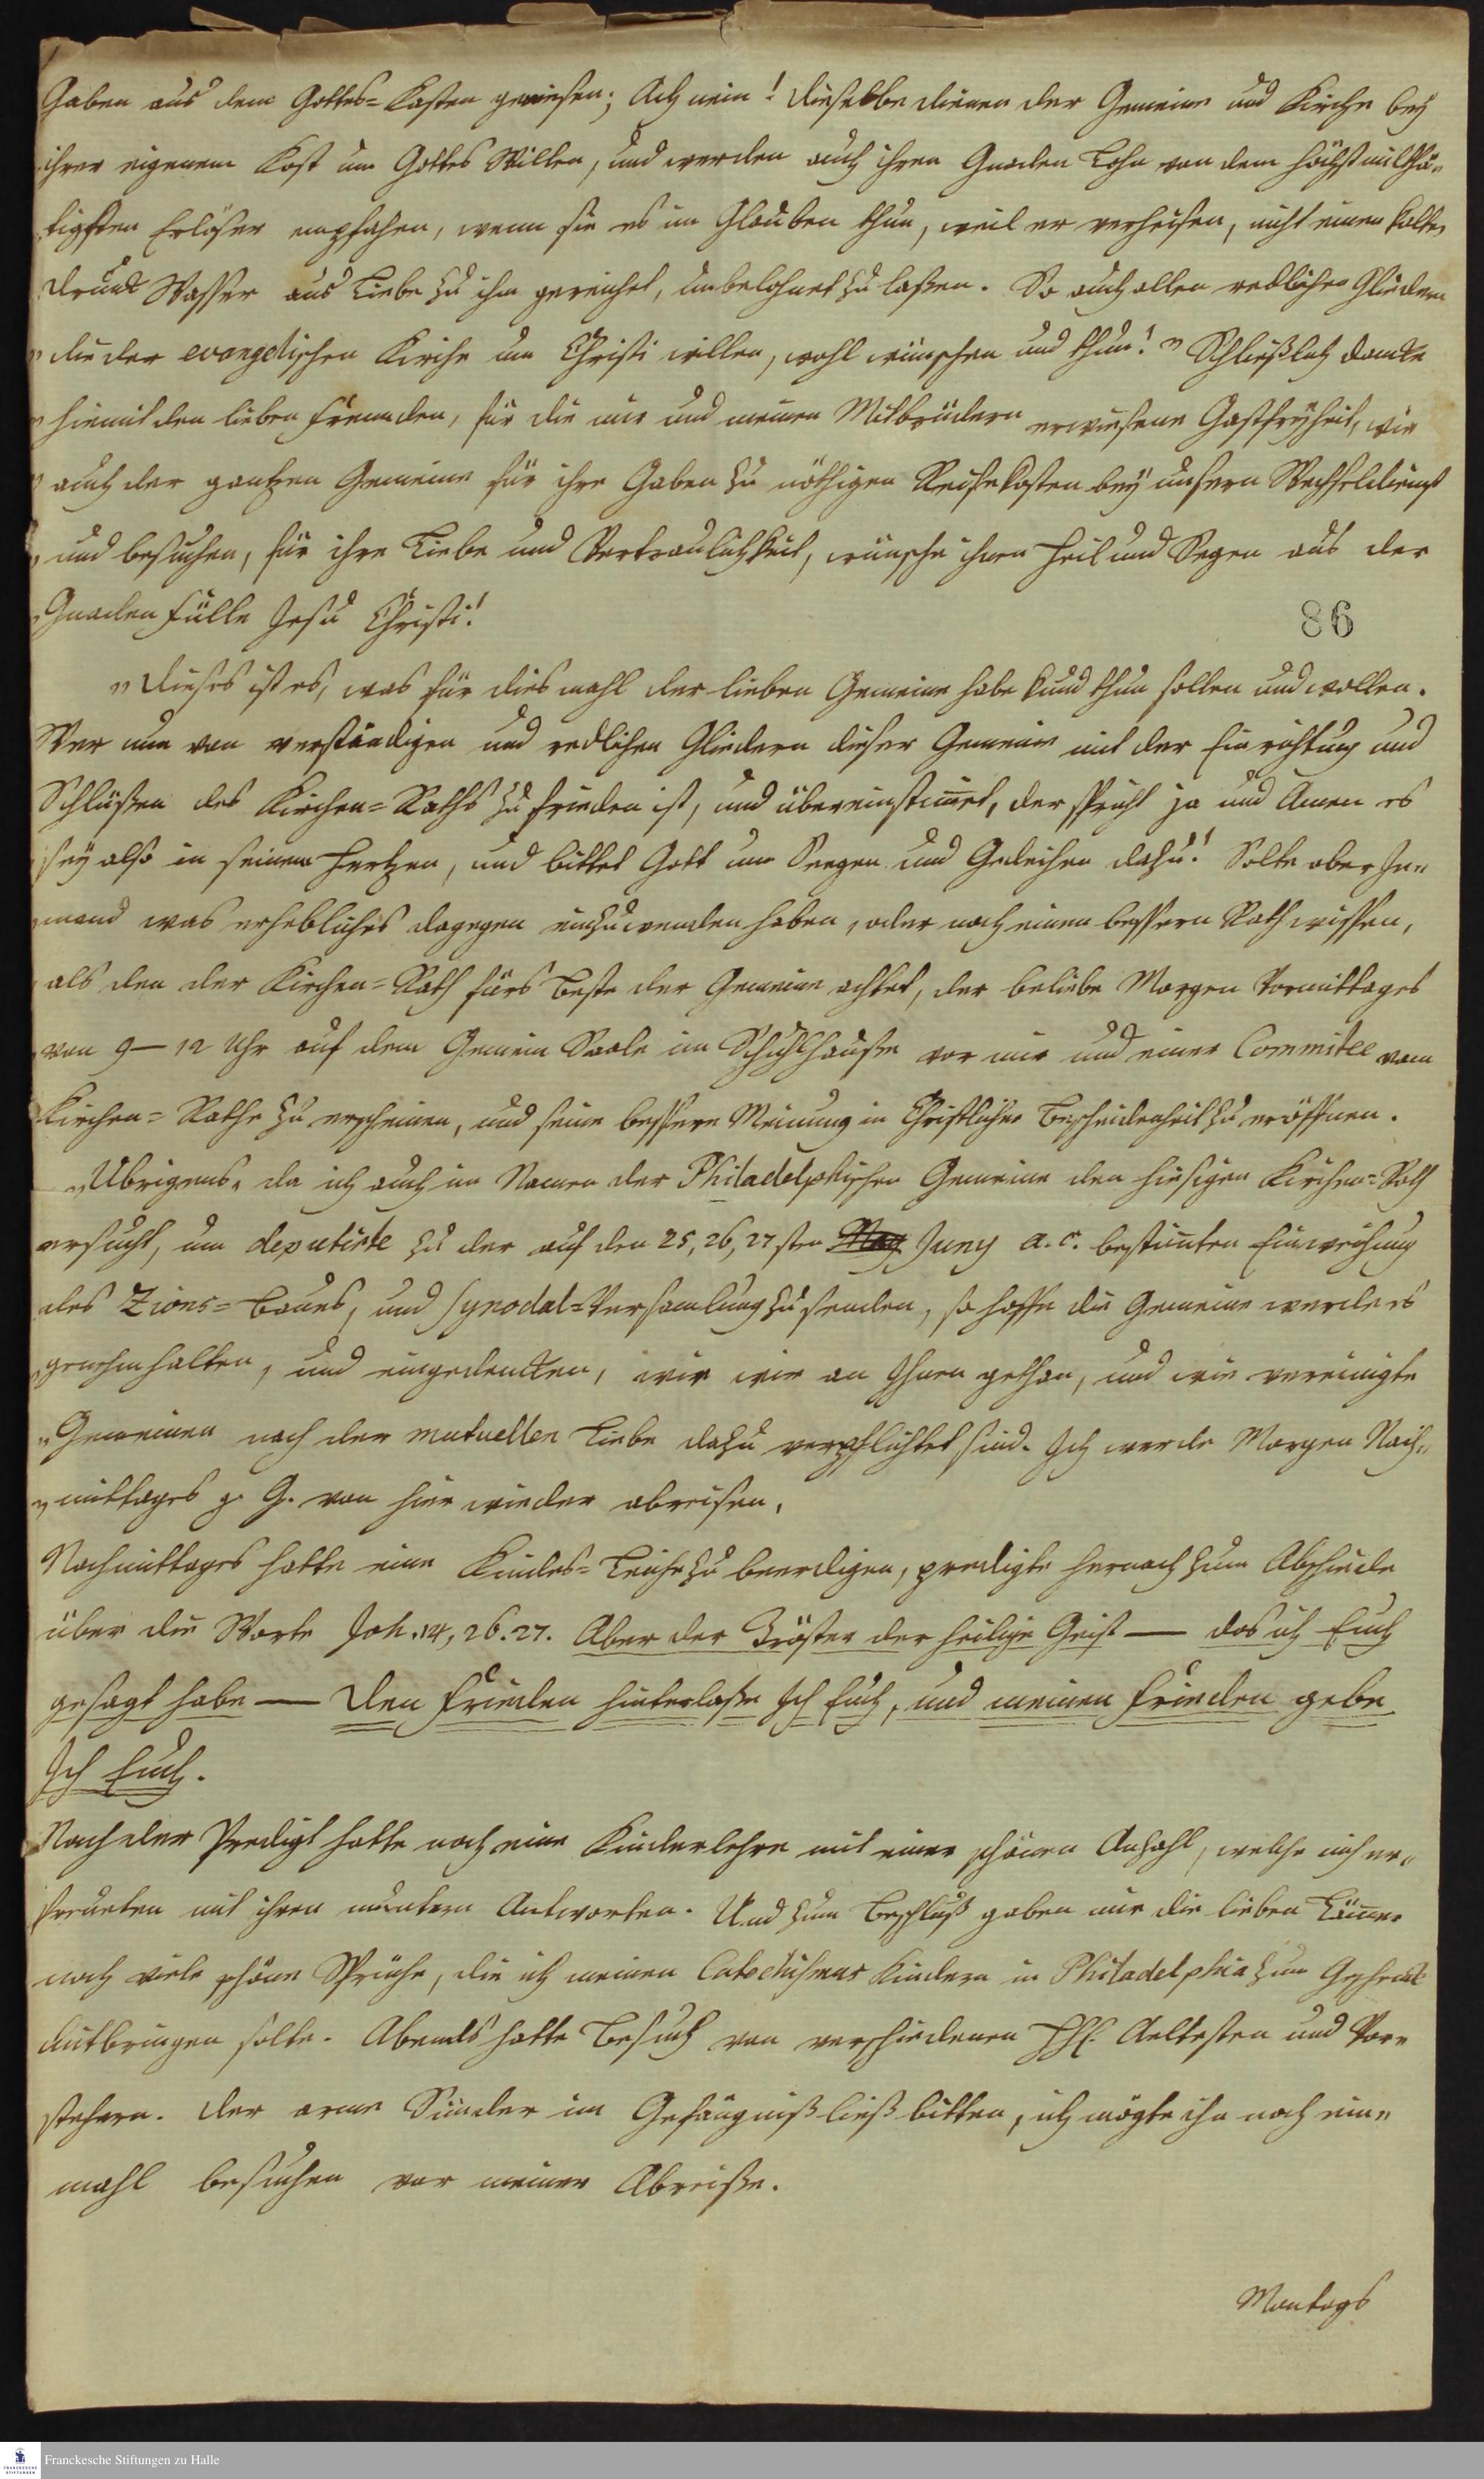 Gaben aus dem Gottes=Kasten geniesen; Ach nein! dieselbe dienen der Gemeine und Kirche bey
ihrer eigenem Kost um Gottes Willen, und werden auch ihren Gnaden Lohn von dem höchstmilthä-
tigsten Erlöser empfahen, wenn sie es im Glauben thun, weil er verheisen, nicht einen kalten
Trunck Wasser aus Liebe zu ihm gereichet, unbelohnet zu laßen. So auch allen redlichen Gliedern
" die der evangelischen Kirche um Christi willen, wohl wünschen und thun! " Schließlich dancke
" hiemit den lieben Freunden, für die mir und meinen Mitbrüdern erwiesene Gastfreyheit, wie
" auch der gantzen Gemeine für ihre Gaben zu nöthigen Reisekosten bey unsern Wechseldienst
" und besuchen, für ihre Liebe und Vertraulichkeit, wünsche ihnen Heil und Segen aus der
" Gnaden Fülle Jesu Christi!
86
" Dieses ist es, was für diesmahl der lieben Gemeine habe kund thun sollen und wollen.
Wer nun von verständigen und redlichen Gliedern dieser Gemeine mit der Einrichtung und
Schlüßen des Kirchen=Raths zu frieden ist, und übereinstim̅et, der spricht ja und Amen es
sey also in seinem Hertzen, und bittet Gott um Seegen und Gedeihen dazu! Solte aber Je-
" mand was erhebliches dagegen einzuwenden haben, oder noch einen bessern Rath wissen,
als den der Kirchen=Rath fürs Beste der Gemeine achtet, der beliebe Morgen Vormittages
von 9 — 12 Uhr auf dem Gemein Saale im Schulhauße vor mir und einer Committee vom
Kirchen=Rathe zu erscheinen, und seine bessere Meinung in Christlicher Bescheidenheit zu eröffnen.
" Übrigens, da ich auch im Namen der Philadelphischen Gemeine den hiesigen Kirchen=Rath
ersucht, um deputirte zu der auf den 25, 26, 27sten May Juny a. c. bestim̅ten Einweihung
des Zions=Baues, und Synodal=Versamlung zu senden, so hoffe die Gemeine werde es
" genehmhalten, und eingedencken, wie wir an Ihnen gethan, und wie vereinigte
" Gemeinen nach der mutuellen Liebe dazu verpflichtet sind. Ich werde Morgen Nach-
" mittages g. G. von hier wieder abreisen.
Nachmittages hatte eine Kindes=Leiche zu beerdigen, predigte hernach zum Abschiede
über die Worte Joh. 14, 26. 27. Aber der Tröster der heilige Geist — das ich Euch
gesagt habe — Den Frieden hinterlaße Ich Euch, und meinen Frieden gebe
Ich Euch.
Nach der Predigt hatte noch eine Kinderlehre mit einer schönen Anzahl, welche mich er-
freueten mit ihren muntern Antworten. Und zum Beschluß gaben mir die lieben Läm̅er
noch viele schöne Sprüche, die ich meinen Catechismus Kindern in Philadelphia zum Geschenck
mitbringen solte. Abends hatte Besuch von verschiedenen HH. Aeltesten und Vor-
stehern. Der arme Sünder im Gefängniß ließ bitten, ich mögte ihn noch ein-
mahl besuchen vor meiner Abreiße.
Montags
Franckesche Stiftungen zu Halle